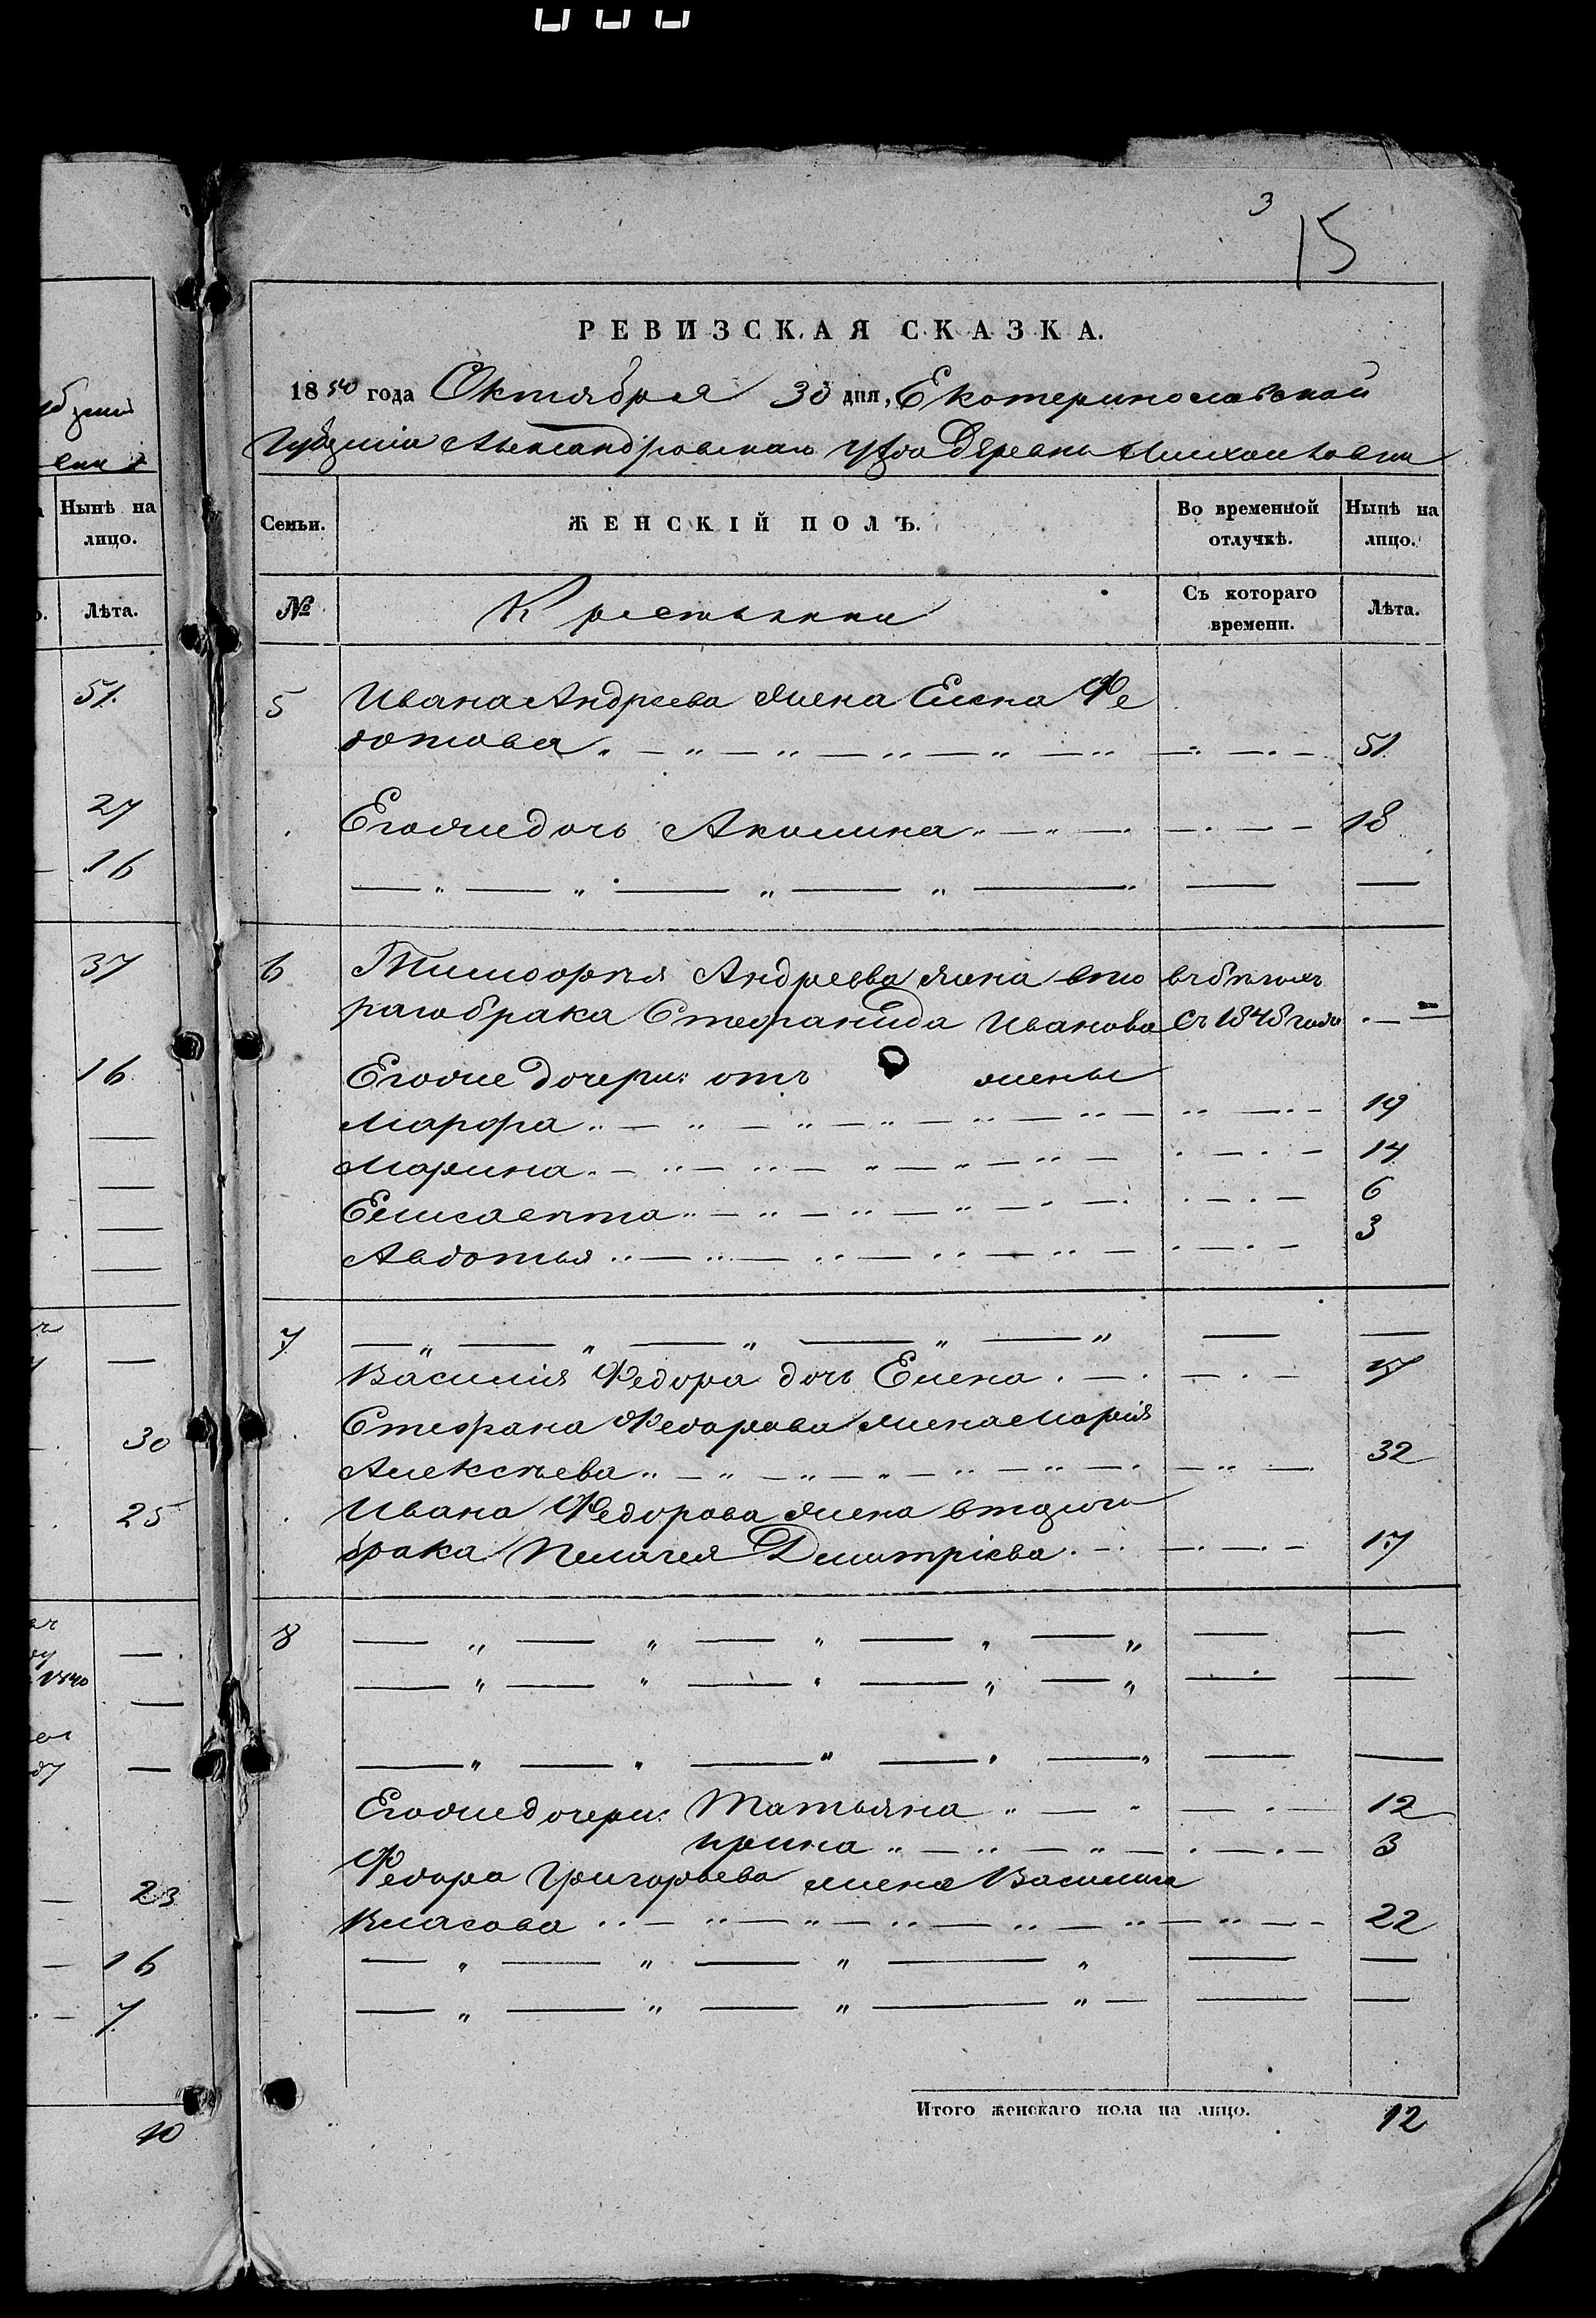 3
15
РЕВИЗСКАЯ СКАЗКА.
1850 года Октября 30 дня, Екатеринославской
Губерніи Александровскаго уѣзда Деревни Михайловки
Семьи.
ЖЕНСКІЙ ПОЛЪ.
Во временной отлучкѣ.
Нынѣ на лицо.
№
Крестьянки
Съ котораго времени.
Лѣта.
5 Ивана Андреева жена Елена Фе
дотова 51
Егожедочь Акилина 18
6 Тимофѣя Андреева жена вто въ бѣгахъ
рагобрака Стефанида Иванова съ 1848 года
Егоже дочери: отъ жены
Марфа 19
Марина 14
Елисавѣта 6
Авдотья 3
7
Василія Федора дочь Елена 17
Стефана Федорова жена Марія
Алексѣева 32
Ивана Федорова жена втораго
брака Пелагея Дмитріева 17
8
Егожедочери: Татьяна 12
Ирина 3
Федора Григорьева жена Василиса
Власова 22
Итого женскаго пола на лицо. 12
Нынѣ на
лицо.
Лѣта.
51
27
16
37
16
30
25
1840
23
16
7
10